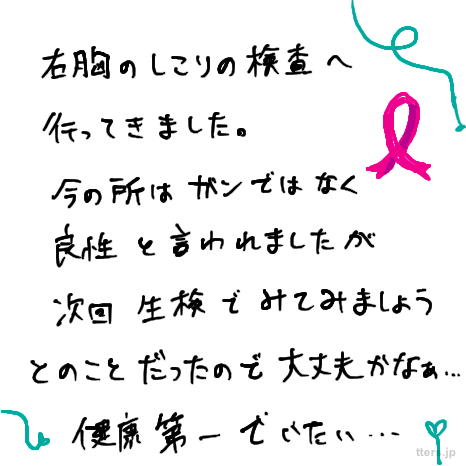 右胸のしこりの検査へ
行ってきました。
今の所はガンではなく
良性と言われましたが
次回生検でみてみましょう
とのことだったので大丈夫かなぁ…
健康第一でいたい…
tters.jp